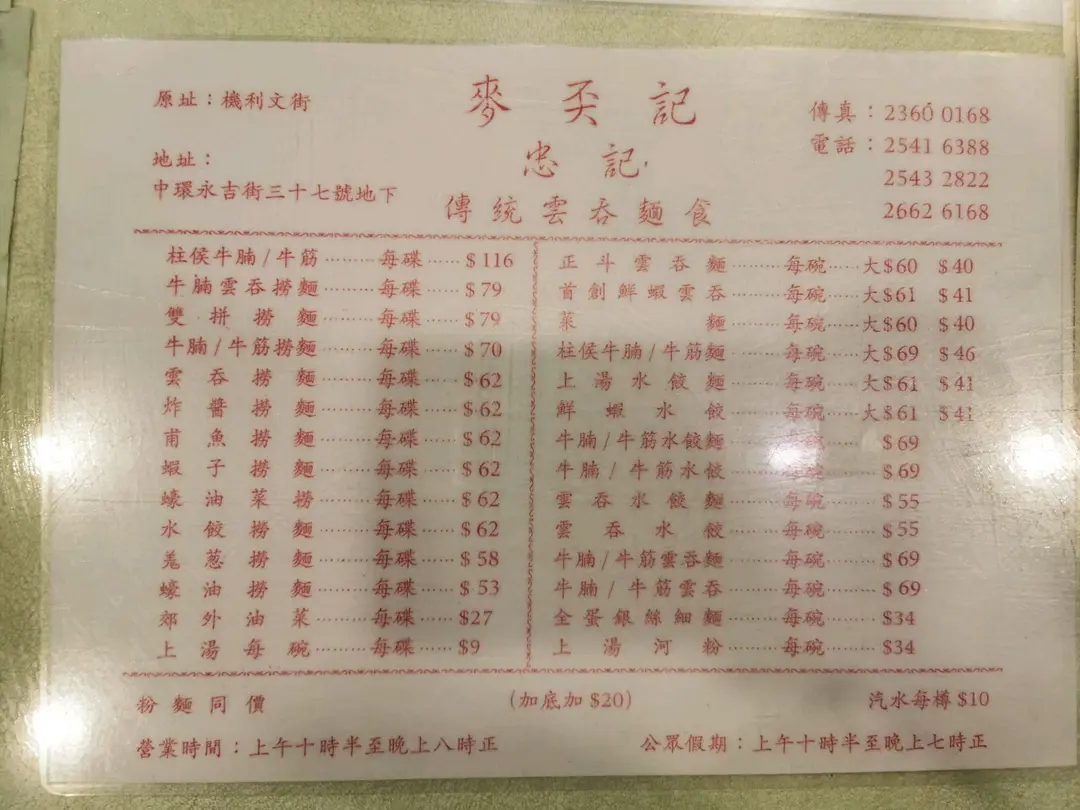 原址：機利文街
麥奀記
忠記
傳統雲吞麵食
地址：
中環永吉街三十七號地下
傳真：2360 0168
電話：2541 6388
2543 2822
2662 6168
柱侯牛腩/牛筋………每碟……$116
牛腩雲吞撈麵………每碟……$79
雙拼撈麵………每碟……$79
牛腩/牛筋撈麵………每碟……$70
雲吞撈麵………每碟……$62
炸醬撈麵………每碟……$62
甫魚撈麵………每碟……$62
蝦子撈麵………每碟……$62
蠔油菜撈………每碟……$62
水餃撈麵………每碟……$62
羗蔥撈麵………每碟……$58
蠔油撈麵………每碟……$53
郊外油菜………每碟……$27
上湯每碗………每碟……$9
正斗雲吞麵………每碗……大$60 $40
首創鮮蝦雲吞………每碗……大$61 $41
菜麵………每碗……大$60 $40
柱侯牛腩/牛筋麵………每碗……大$69 $46
上湯水餃麵………每碗……大$61 $41
鮮蝦水餃………每碗……大$61 $41
牛腩/牛筋水餃麵………每碗……$69
牛腩/牛筋水餃………每碗……$69
雲吞水餃麵………每碗……$55
雲吞水餃………每碗……$55
牛腩/牛筋雲吞麵………每碗……$69
牛腩/牛筋雲吞………每碗……$69
全蛋銀絲細麵………每碗……$34
上湯河粉………每碗……$34
粉麵同價
(加底加 $20)
汽水每樽 $10
營業時間：上午十時半至晚上八時正
公眾假期：上午十時半至晚上七時正